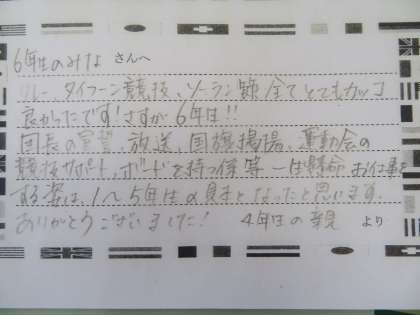 6年生のみな さんへ
リレー、タイフーン競技、ソーラン節 全てとてもカッコ
良かったです！さすが6年生!!
団長の宣誓、放送、国旗掲揚、運動会の
競技サポート、ボードを持つ係 等 一生懸命 お仕事を
する姿は、1〜5年生の見本となったと思います。
ありがとうございました！ 4年生の親 より